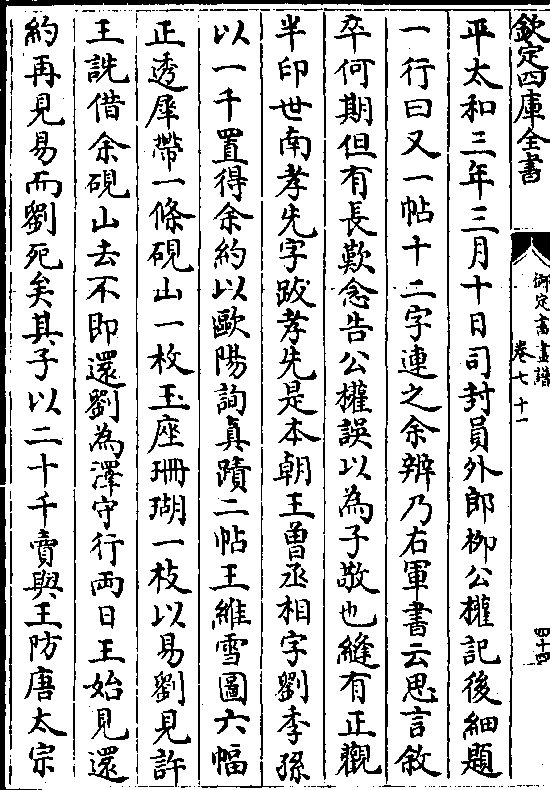 欽定四庫全書
御定書畫譜
卷七十一
四十四
平太和三年三月十日司封員外郎柳公權記後細題
一行曰又一帖十二字連之余辨乃右軍書云思言敘
卒何期但有長歎念告公權誤以為子敬也縫有正觀
半印世南孝先字跋孝先是本朝王曽丞相字劉季孫
以一千置得余約以歐陽詢真蹟二帖王維雪圖六幅
正透犀帶一條硯山一枚玉座珊瑚一枝以易劉見許
王詵借余硯山去不即還劉為澤守行兩日王始見還
約再見易而劉死矣其子以二十千賣與王防唐太宗